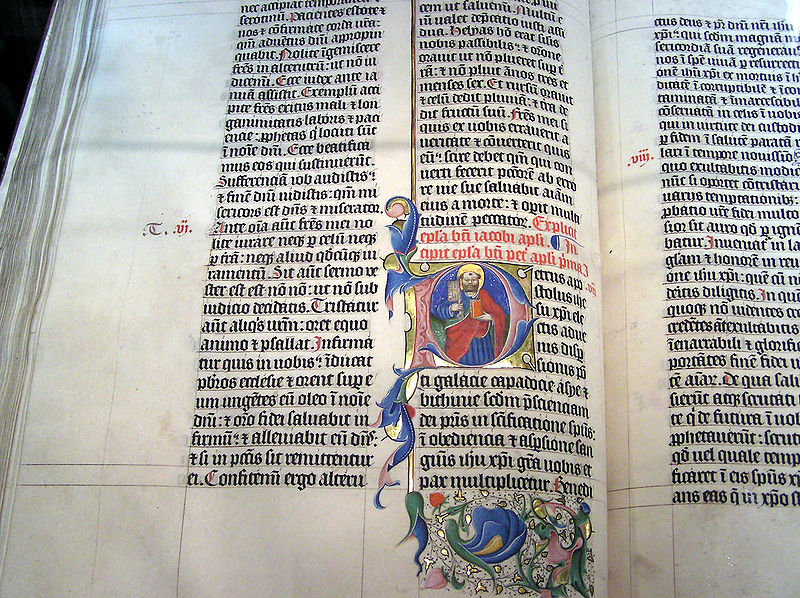 nec accipiat temporaneu &
serotinu. Pacientes estote &
uos & cōfirmate corda ura:
qm aduētus dñi appropin
quabit. Nolite īgemiscere
frēs in alterutrū: ut nō iu
dicemī. Ecce iudex ante ia
nuā assistit. Exemplū acci
pite frēs exitus mali & lon
ganimitatis laboris & paci
encie: pphetas q locuti sūt
ī noīe dñi. Ecce beatifica
mus eos qui sustinuerūt.
Sufferenciā iob audistis:
& finē dñi uidistis: qm mi
sericors est dñs & miserator.
T. .vj. Ante oīa aūt frēs mei no
lite iurare neq; p celū neq;
p trā: neq; aliud qdcūq; iu
ramentū. Sit aūt sermo ve
ster est est nō nō: ut nō sub
iudicio decidatis. Tristatur
aūt aliqs urm: oret equo
animo & psallat. Infirma
tur quis in uobis: īducat
pbros ecclesie & orent sup e
um ungētes eū oleo ī noīe
dñi: & oro fidei saluabit in
firmū: & alleuabit eū dñs:
& si in pctis sit remittentur
ei. Confitemī ergo alterut
cem ut saluemī. Multū e
nī ualet depcatio iusti assi
dua. Helyas hō erat silis
nobis passibilis: & orone
orauit ut nō plueret sup t
rā: & nō pluit ānos tres et
menses sex. Et rursū orauit
& celū dedit pluuiā: & tra de
dit fructū suū. Frēs mei si
quis ex uobis errauerit a
ueritate & cōuerterit quis
eū: scire debet qm qui con
uerti fecerit pctorē ab erro
re uie sue saluabit aīam
eius a morte: & opit multi
tudinē pecctator. Explicit
epsa bti iacobi apli. In
cipit epsa bti pet apli prima I
Petrus apo .vij.
stolus ihe
su xpi ele
ctis adue
nis disp
sionis po
ti galacie capadocie asye &
bithinie scdm psscienciam
dei pris in scificatione sps:
ī obediencia & aspsione san
guis ihu xpi gra uobis et
pax multiplicetur. Benedi
ctus deus & pr dñi nri ihu
xpi: qui scdm magnā mi
sericordiā suā regenerauit
nos ī spē uiuā p resurrecti
onē ihu xpi ex mortuis ī h
ditatē ī corruptibilē & ī con
taminatā & īmarcescibil
cōseruatā in celis ī uobis
qui in uirtute dei custodi
p fidē ī salutē paratā r
.viij. lari ī tempore nouissīo
quo exultabitis modic
nūc si oportet cōtristari
uariis temptationibus:
pbatio urē fidei multo
sior sit auro qd p ignē
batur. Inueniat in la
glam & honorē in reu
one ihu xpi: quē cū n
deritis diligitis. In qu
quoq; nō uidentes cre
credētes āt exultabitis
īenarrabili & glorific
portātes finē fidei u
tē aīar. De qua salu
sierūt atq; scrutati
te q de futura ī uob
pphetauerūt: scruta
qd uel quale temp
ficaret ī eis spūs x
ans eas q in xpo s